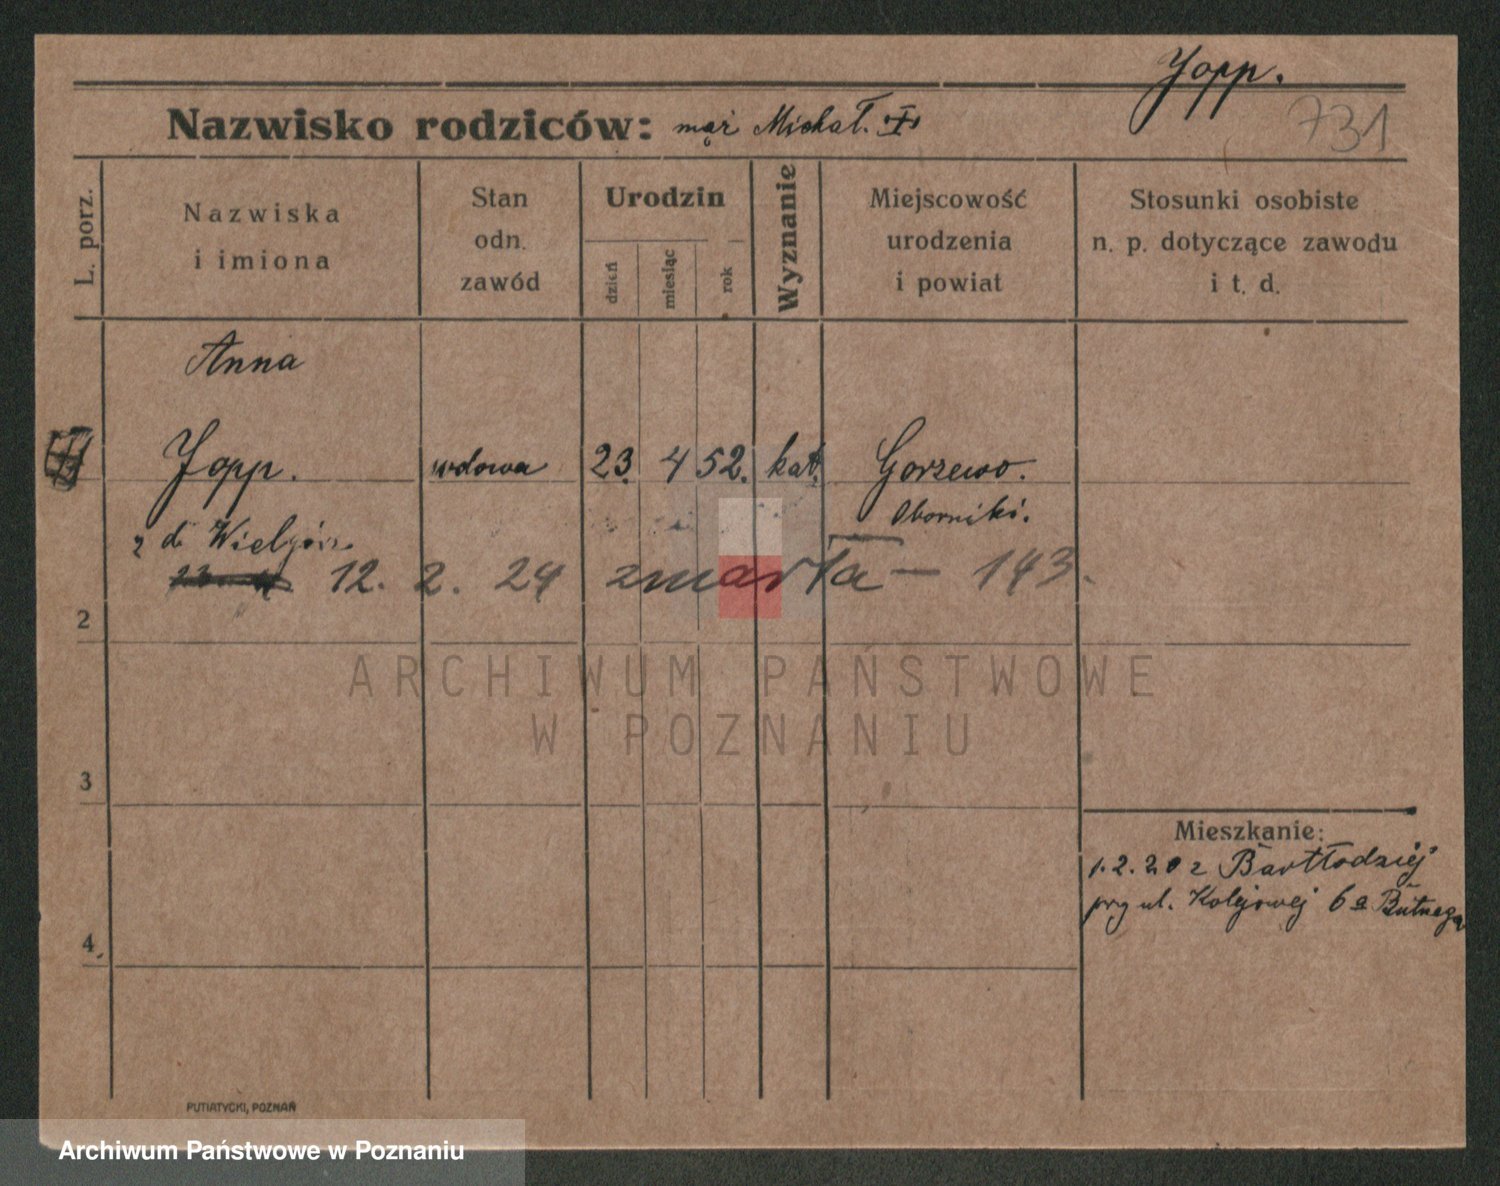 Yopp.
731
Nazwisko rodziców: mąż Michał.
L. porz.
Nazwiska
i imiona
Stan
odn.
zawód
Urodzin
dzień
miesiąc
rok
Wyznanie
Miejscowość
urodzenia
i powiat
Stosunki osobiste
n. p. dotyczące zawodu
i t. d.
Anna
Yopp. wdowa 23. 4 52. kat. Gorzewo.
Oborniki.
z d.
12. 2. 24 zmarła — 143.
2
3
4
ARCHIWUM PAŃSTWOWE
W POZNANIU
Mieszkanie:
1.2.20 z Bartłodziej
przy ul. Kolejowej 6a
PUTIATYCKI, POZNAŃ
Archiwum Państwowe w Poznaniu